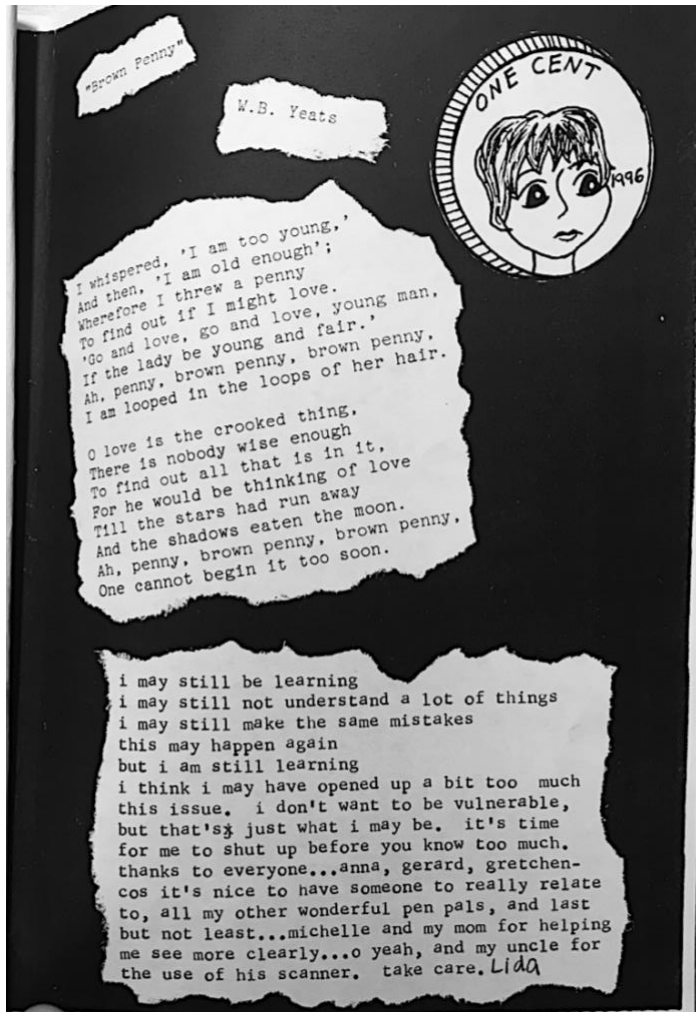 "Brown Penny"
W.B. Yeats
ONE CENT
1996
I whispered, 'I am too young,'
And then, 'I am old enough';
Wherefore I threw a penny
To find out if I might love.
'Go and love, go and love, young man,
If the lady be young and fair.'
Ah, penny, brown penny, brown penny,
I am looped in the loops of her hair.
O love is the crooked thing,
There is nobody wise enough
To find out all that is in it,
For he would be thinking of love
Till the stars had run away
And the shadows eaten the moon.
Ah, penny, brown penny, brown penny,
One cannot begin it too soon.
i may still be learning
i may still not understand a lot of things
i may still make the same mistakes
this may happen again
but i am still learning
i think i may have opened up a bit too much
this issue. i don't want to be vulnerable,
but that's just what i may be. it's time
for me to shut up before you know too much.
thanks to everyone...anna, gerard, gretchen-
cos it's nice to have someone to really relate
to, all my other wonderful pen pals, and last
but not least...michelle and my mom for helping
me see more clearly...o yeah, and my uncle for
the use of his scanner. take care. Lida